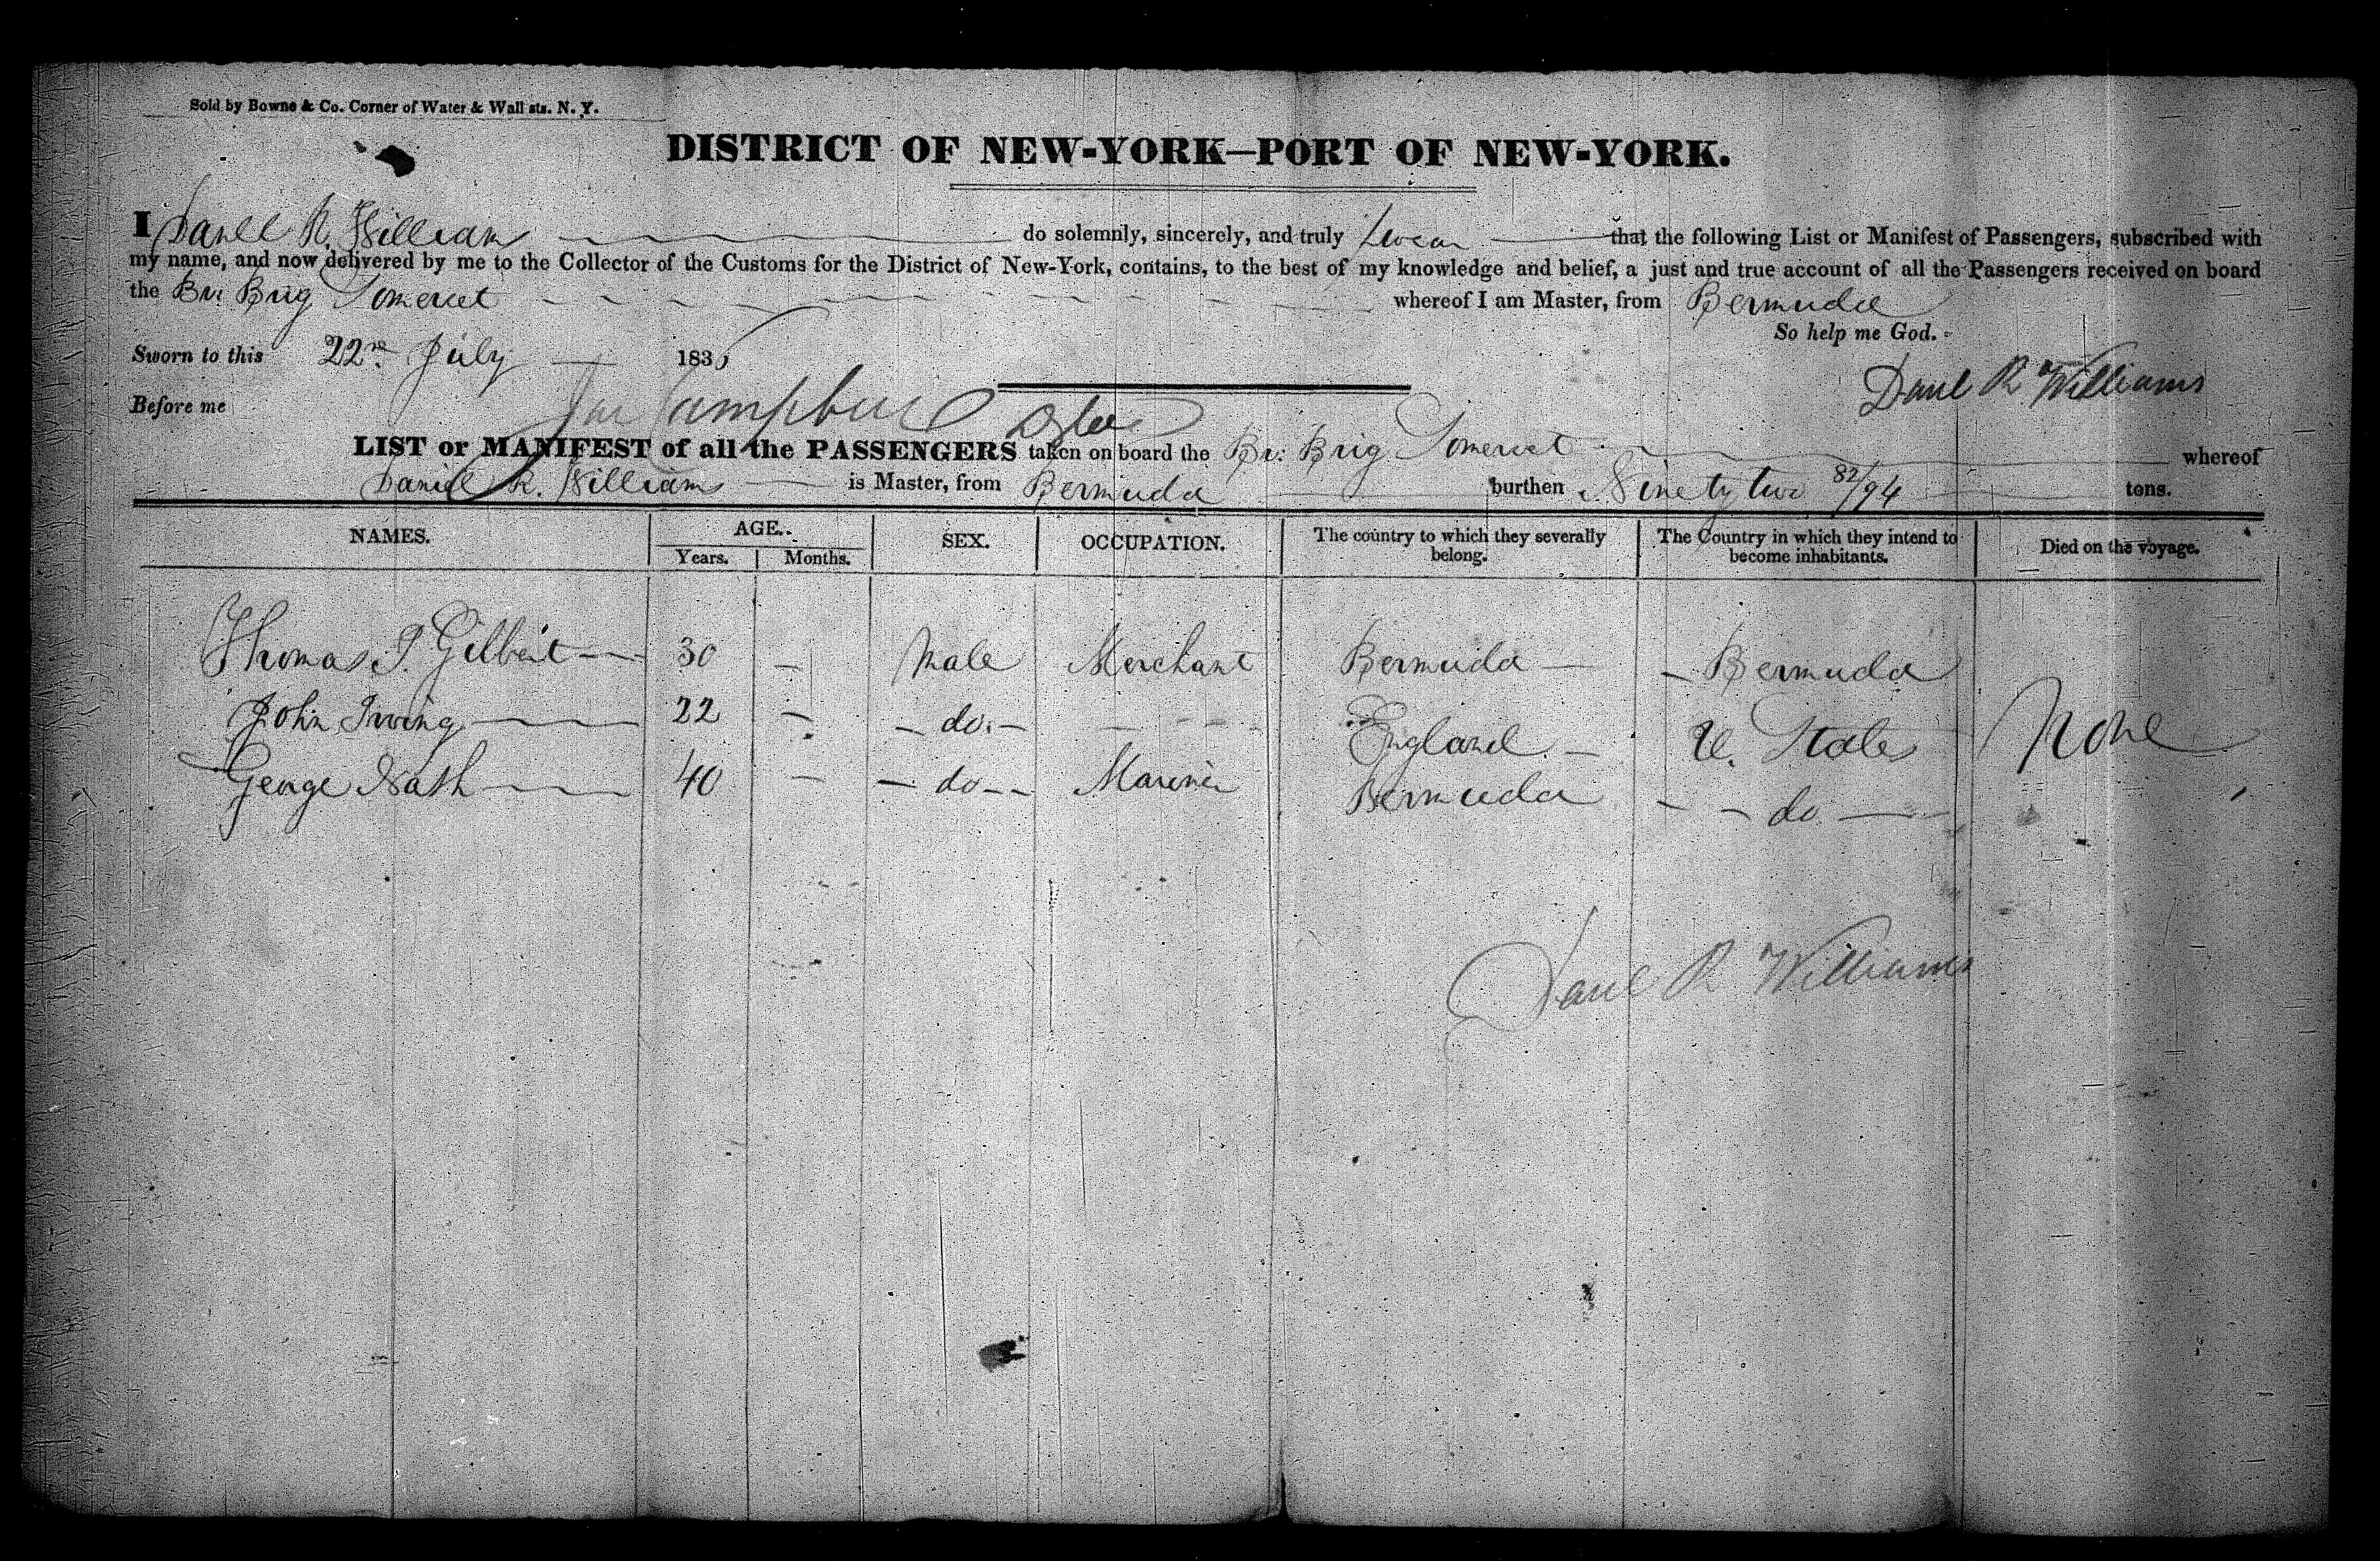 Sold by Bowne & Co. Corner of Water & Wall sts. N. Y.
DISTRICT OF NEW-YORK—PORT OF NEW-YORK.
I Daniel R. William do solemnly, sincerely, and truly Swear that the following List or Manifest of Passengers, subscribed with
my name, and now delivered by me to the Collector of the Customs for the District of New-York, contains, to the best of my knowledge and belief, a just and true account of all the Passengers received on board
the Br. Brig Somerset whereof I am Master, from Bermuda
So help me God.
Sworn to this 22nd July 183
Danl R Williams
Before me Campbell
LIST or MANIFEST of all the PASSENGERS taken on board the Br: Brig Somerset whereof
Daniel R. William is Master, from Bermuda burthen Ninety two 82/94 tons.
NAMES. AGE. SEX. OCCUPATION. The country to which they severally belong. The Country in which they intend to become inhabitants. Died on the voyage.
Years. Months.
Thomas J. Gilbert 30 – Male Merchant Bermuda – Bermuda
John Irving 22 – – do. – – – – England – U. States None
George Nash 40 – – do – – Mariner Bermuda – – do –
Danl R Williams